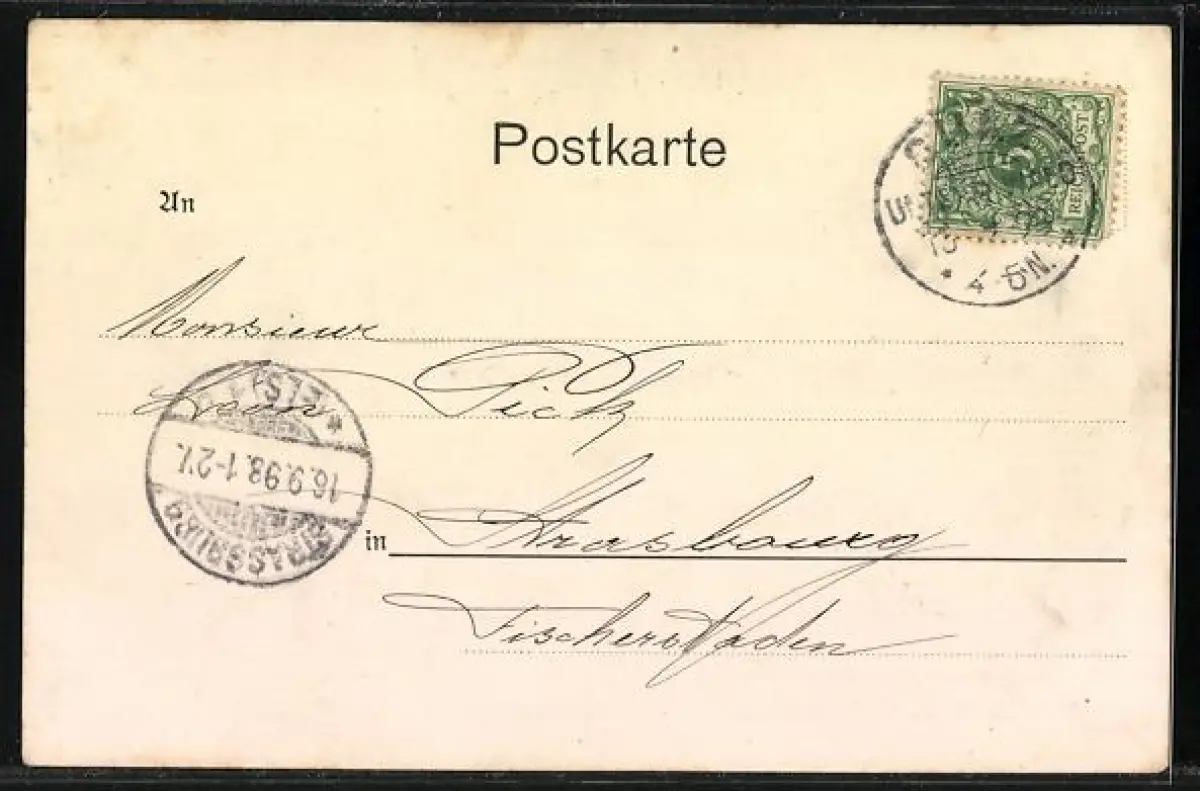 Postkarte
An
REICHSPOST
5
4-5N.
Monsieur
Pick
ELS.
16.9.98.1-2V.
STRASSBURG
in Strasbourg
Fischerstaden